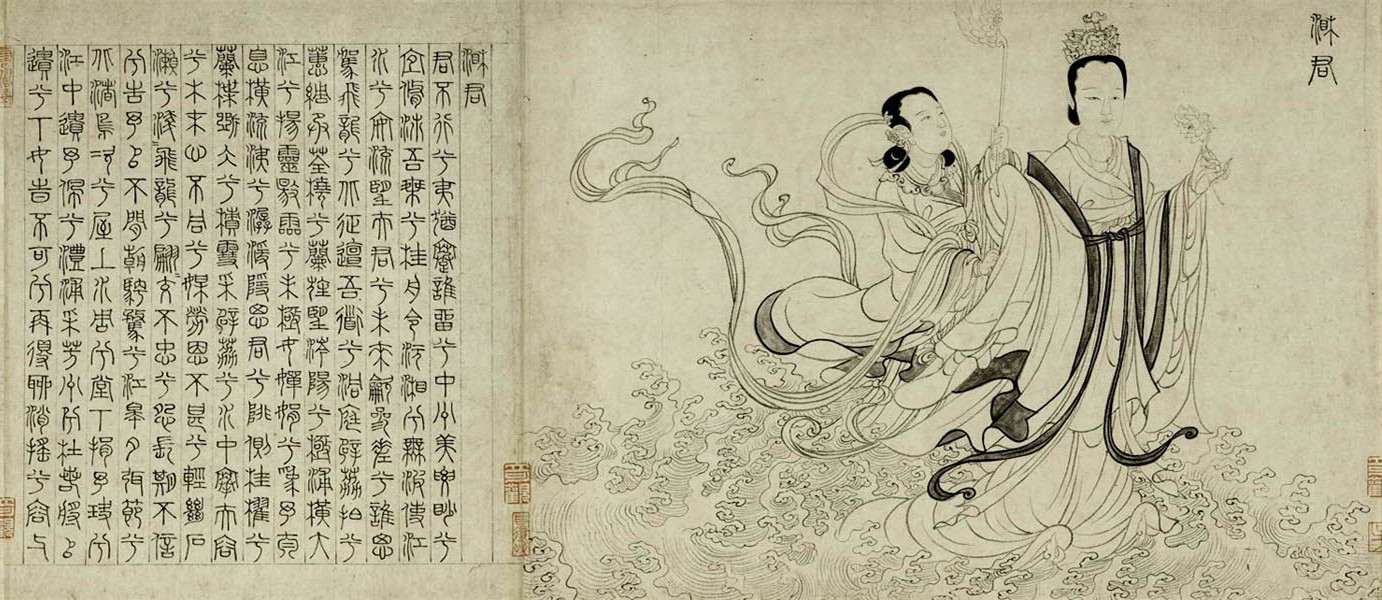 湘君
湘君
君不行兮夷猶蹇誰留兮中州美要眇兮
宜脩沛吾乘兮桂舟令沅湘兮無波使江
水兮安流望夫君兮未來歙參差兮誰思
駕飛龍兮北征邅吾道兮洞庭薜荔拍兮
蕙綢承荃橈兮蘭旌望涔陽兮極浦橫大
江兮揚靈揚靈兮未極女嬋媛兮爲予太
息橫流涕兮潺湲隱思君兮陫側桂櫂兮
蘭枻斲冰兮積雪采薜荔兮水中搴芙蓉
兮木末心不同兮媒勞恩不甚兮輕絕石
瀨兮淺淺飛龍兮翩翩交不忠兮怨長期不信
兮告予以不閒朝騁騖兮江皋夕弭節兮
北渚鳥次兮屋上水周兮堂下捐予玦兮
江中遺予佩兮澧浦采芳洲兮杜若將以
遺兮下女時不可兮再得聊逍遙兮容與